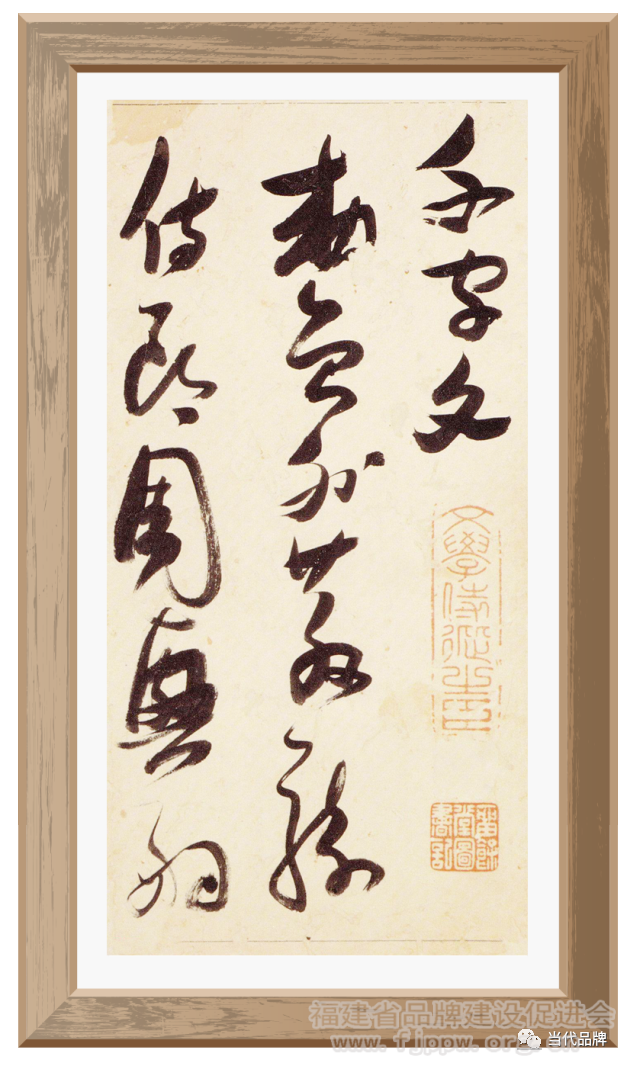 千字文
勅員外散騎
侍郎周興嗣
文學侍從之臣
福建省品牌建设促进会
www.fjppw.org.cn
当代品牌